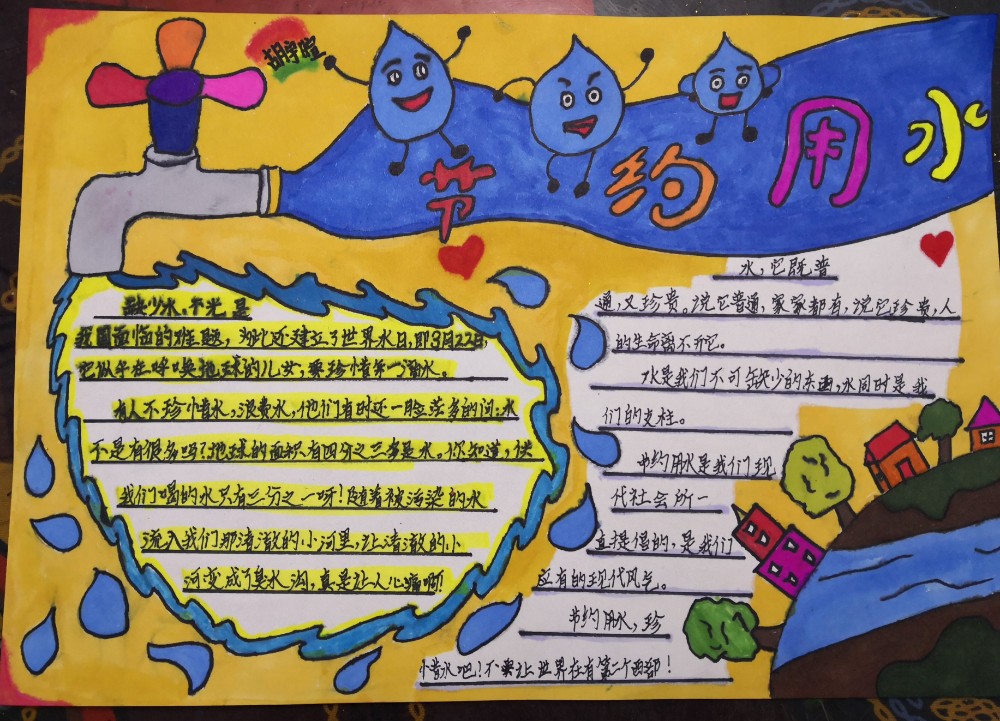 胡宇瑄
节约用水
缺少水,不光是
我国面临的难题,为此还建立了世界水日,即3月22日,
它似乎在呼唤地球的儿女,要珍惜第一滴水。
有人不珍惜水,浪费水,他们有时还一脸茫多的问:水
不是有很多吗?地球的面积有四分之三者是水。你知道,供
我们喝的水只有三分之一呀!随着被污染的水
流入我们那清澈的小河里,让清澈的小
河变成了臭水沟,真是让人心痛啊!
水,它既普
通,又珍贵。说它普通,家家都有,说它珍贵,人
的生命离不开它。
水是我们不可缺少的东西,水同时是我
们的支柱。
节约用水是我们现
代社会所一
直提倡的,是我们
应有的现代风气。
节约用水,珍
惜水吧!不要让世界在有第二个西部!